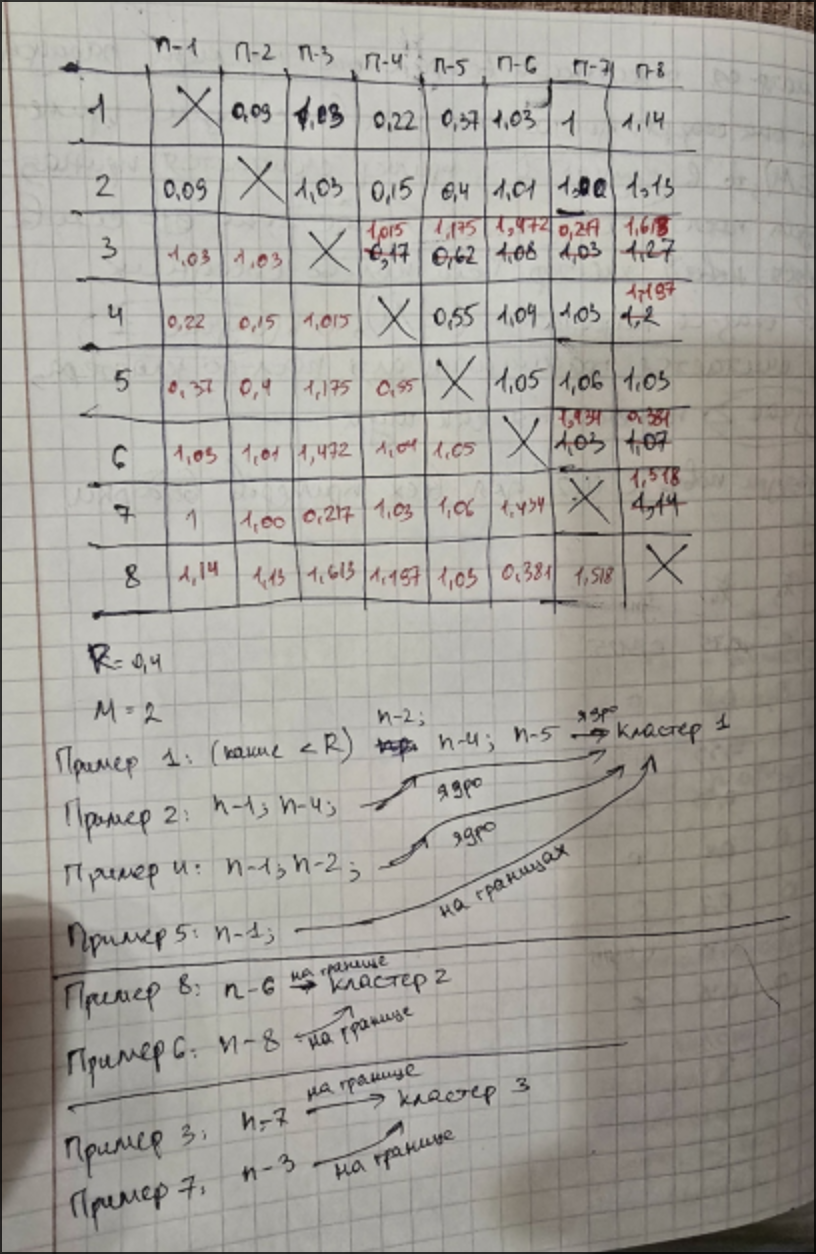 п-1 п-2 п-3 п-4 п-5 п-6 п-7 п-8
1 X 0,09 1,03 0,22 0,37 1,03 1 1,14
2 0,09 X 1,03 0,15 0,4 1,01 1,00 1,13
1,015 1,175 1,472 0,217 1,613
3 1,03 1,03 X 0,17 0,62 1,08 1,03 1,27
1,197
4 0,22 0,15 1,015 X 0,55 1,04 1,03 1,2
5 0,37 0,4 1,175 0,55 X 1,05 1,06 1,03
1,434 0,381
6 1,03 1,01 1,472 1,04 1,05 X 1,03 1,07
1,518
7 1 1,00 0,217 1,03 1,06 1,434 X 1,14
8 1,14 1,13 1,613 1,197 1,03 0,381 1,518 X
R = 0,4
M = 2
Пример 1: (какие < R) п-2; п-4; п-5 ядро → кластер 1
Пример 2: п-1; п-4; ядро
Пример 4: п-1; п-2; ядро
Пример 5: п-1; на границах
Пример 8: п-6 на границе → кластер 2
Пример 6: п-8 на границе
Пример 3: п-7 на границе → кластер 3
Пример 7: п-3 на границе